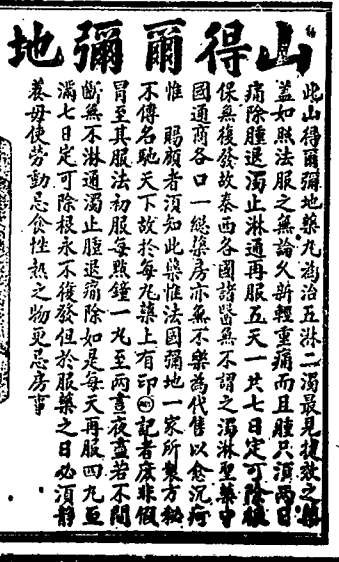 山得爾彌地
此山得爾彌地藥九為治五淋二濁最見復效之藥
蓋如照法服之無論久新輕重痛而且腫只須兩日
痛除腫退濁止淋通再服五天一共七日定可除根
保無復發故泰西各國諸醫無不謂之濁淋聖藥中
國通商各口一總藥房亦無不樂為代售以愈沉疴
惟 賜顧者須知此藥惟法國彌地一家所製方秘
不傳名馳天下故於每九藥上有印記者庶非假
冒至其服法初服每點鐘一九至兩晝夜盡若不間
斷無不淋通濁止腫退痛除如是每天再服四九至
滿七日定可除根永不復發但於服藥之日必須靜
養毋使勞動忌食性熱之物更忌房事